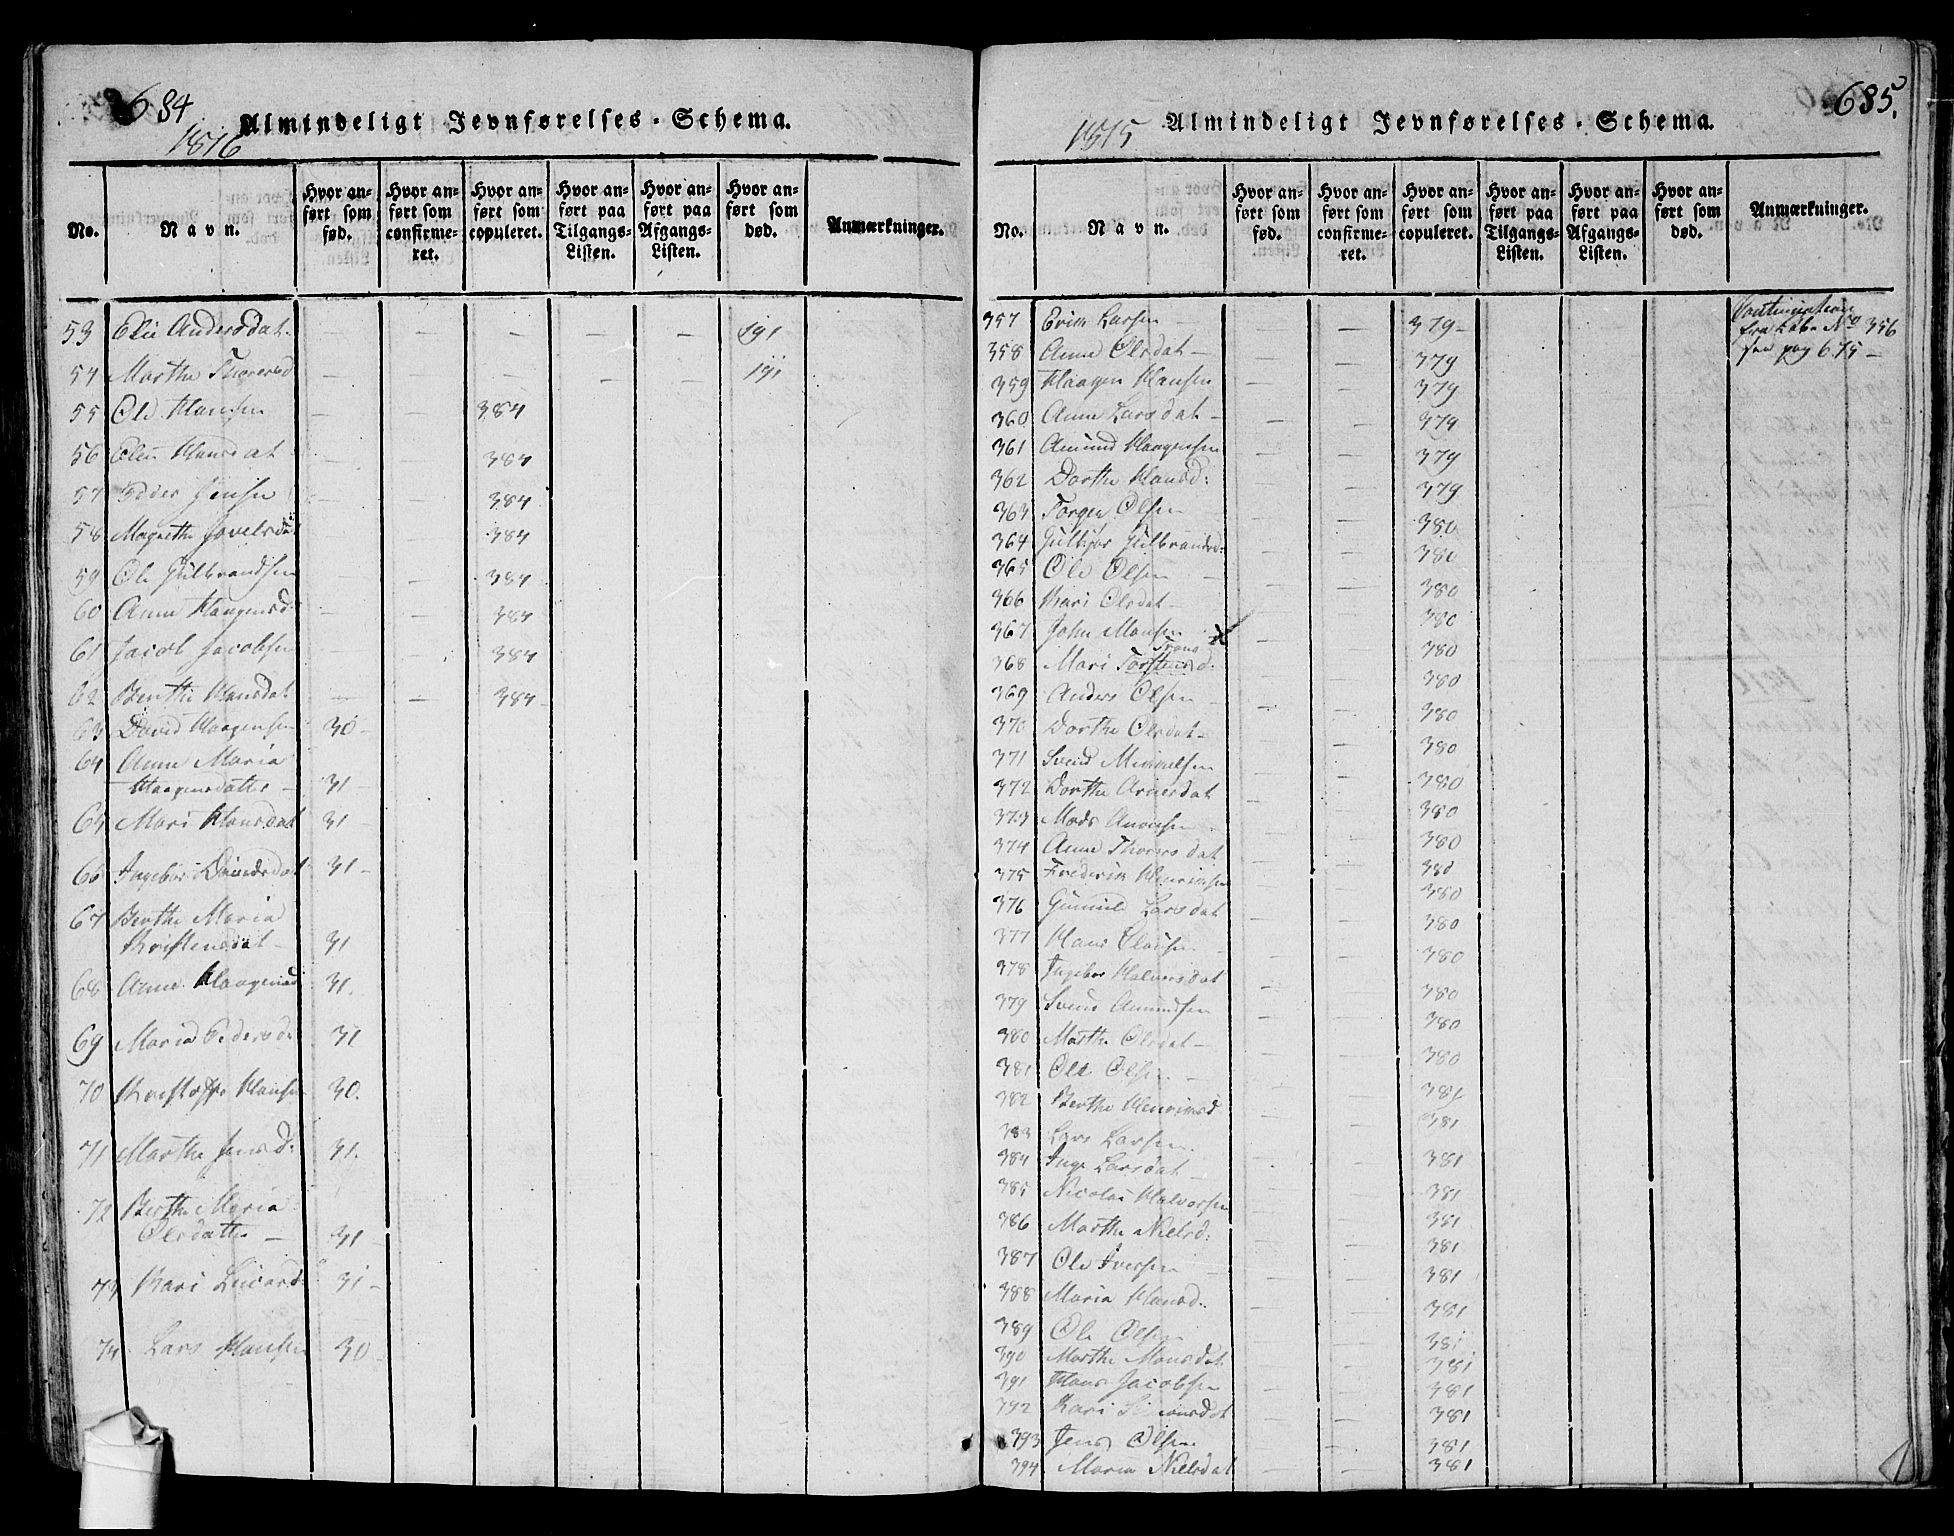 684
1816
Almindeligt Jevnførelses-Schema.
No.
Navn.
Hvor anført som fød.
Hvor anført som confirmeret.
Hvor anført som copuleret.
Hvor anført paa Tilgangs-Listen.
Hvor anført paa Afgangs-Listen.
Hvor anført som død.
Anmærkninger.
53 Elie Andersdat - - - - - 191
54 Marthe Thoresd - - - - - 191
55 Ole Hansen - - 384
56 Elen Hansdat - - 384
57 Peder Jensen - - 384
58 Magrethe Jovelsdat - - 384
59 Ole Gulbrandsen - - 384
60 Anne Haagensd - - 384
61 Jacob Jacobsen - - 384
62 Berthe Hansdat - - 384
63 David Haagensen 30-
64 Anne Maria
Haagensdatter - 31-
65 Mari Hansdat 31
66 Ingebor 31-
67 Berthe Maria
Kristensdat - 31
68 Anne Haagensd 31.
69 Maria Pedersd 31
70 Kristoffe Hansen 30.
71 Marthe Jensd: 31.
72 Berthe Maria
Olsdatter - 31-
73 Kari 31-
74 Lars Hansen 30-
685.
1815
Almindeligt Jevnførelses-Schema.
No.
Navn.
Hvor anført som fød.
Hvor anført som confirmeret.
Hvor anført som copuleret.
Hvor anført paa Tilgangs-Listen.
Hvor anført paa Afgangs-Listen.
Hvor anført som død.
Anmærkninger.
357 Erik Larsen - - - 379- Continuation
fra No 356
pag 675-
358 Anne Olsdat - - - 379
359 Haagen Hansen - - 379
360 Anne Larsdat - - - 379
361 Amund Haagensen - - 379
362 Dorthe Hansd: - - 379
363 Torger Olsen - - - 380
364 Gulbrandsd: - - 380
365 Ole Olsen - - - 380
366 Kari Olsdat - - - 380
367 John Monsen - - 380
368 Mari Torstensd. - - 380
369 Anders Olsen - - - 380
370 Dorthe Olsdat - - - 380
371 Svend Mikkelsen - - 380
372 Dorthe Arnesdat - - 380
373 Mads - - 380
374 Anne Thoresdat - - 380
375 Frederik Henriksen - - 380
376 Gunnild Larsdat - - 380
377 Hans Clausen - - - 380
378 Ingebor Halvorsdat - - 380
379 Svend Amundsen - - 380
380 Marthe Olsdat - - - 380
381 Ole Olsen - - - 381
382 Berthe Henriksd - - 381
383 Lars Larsen - - 381
384 Inge Larsdat - - - 381
385 Nicolai Halvorsen - - 381
386 Marthe Nielsd: - - 381
387 Ole Iversen - - - 381
388 Maria Hansd. - - 381
389 Ole Olsen - - 381
390 Marthe Monsdat - - 381
391 Hans Jacobsen - - 381
392 Kari Simensdat - - 381
393 Jens Olsen - - 381
394 Maria Nielsdat - - 381